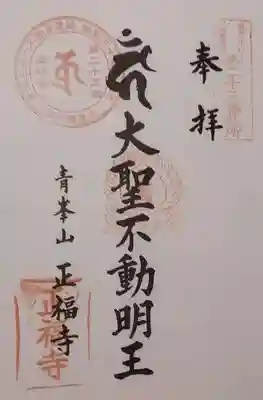 奉拝
大聖不動明王
青峯山 正福寺
正福寺